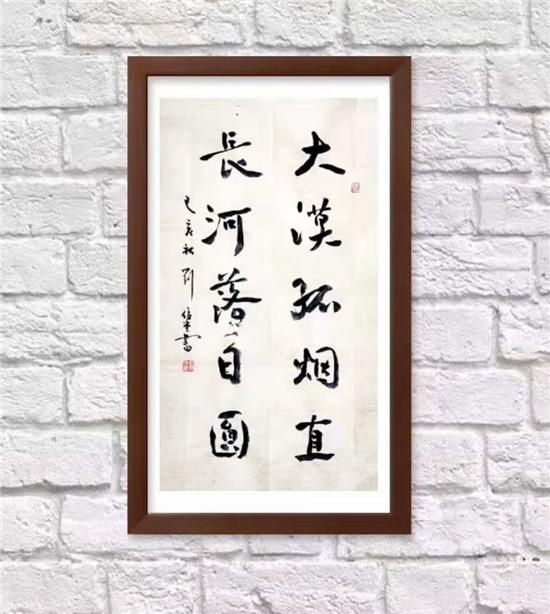 大漠孤烟直
長河落日圓
己亥秋劉書